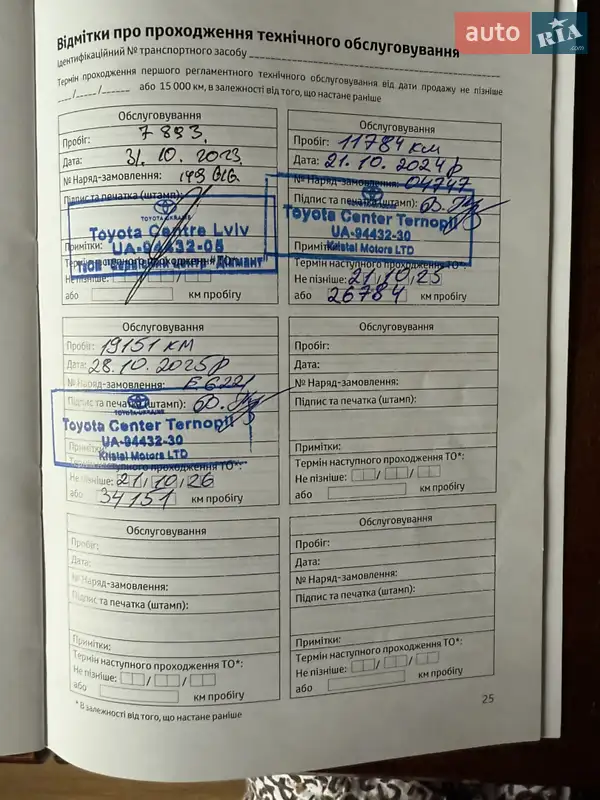 auto RIA .com
Відмітки про проходження технічного обслуговування
Ідентифікаційний № транспортного засобу
Термін проходження першого регламентного технічного обслуговування від дати продажу не пізніше
__/__/__ або 15 000 км, в залежності від того, що настане раніше
Обслуговування
Пробіг: 7 893
Дата: 31.10.2023
№ Наряд-замовлення:
Підпис та печатка (штамп):
TOYOTA-UKRAINE
Toyota Centre Lviv
UA-94432-05
Примітки:
Не пізніше:
або км пробігу
Обслуговування
Пробіг: 11784 км
Дата: 21.10.2024р
№ Наряд-замовлення: 04747
Підпис та печатка (штамп):
Toyota Center Ternopil
UA-94432-30
Kristal Motors LTD
Примітки:
Термін наступного проходження ТО*:
Не пізніше: 21/10/25
або 26784 км пробігу
Обслуговування
Пробіг: 19151 км
Дата: 28.10.2025р
№ Наряд-замовлення:
Підпис та печатка (штамп):
TOYOTA-UKRAINE
Toyota Center Ternopil
UA-94432-30
Kristal Motors LTD
Термін наступного проходження ТО*:
Не пізніше: 21/10/26
або 34151 км пробігу
Обслуговування
Пробіг:
Дата:
№ Наряд-замовлення:
Підпис та печатка (штамп):
Примітки:
Термін наступного проходження ТО*:
Не пізніше:
або км пробігу
Обслуговування
Пробіг:
Дата:
№ Наряд-замовлення:
Підпис та печатка (штамп):
Примітки:
Термін наступного проходження ТО*:
Не пізніше:
або км пробігу
Обслуговування
Пробіг:
Дата:
№ Наряд-замовлення:
Підпис та печатка (штамп):
Примітки:
Термін наступного проходження ТО*:
Не пізніше:
або км пробігу
* В залежності від того, що настане раніше
25